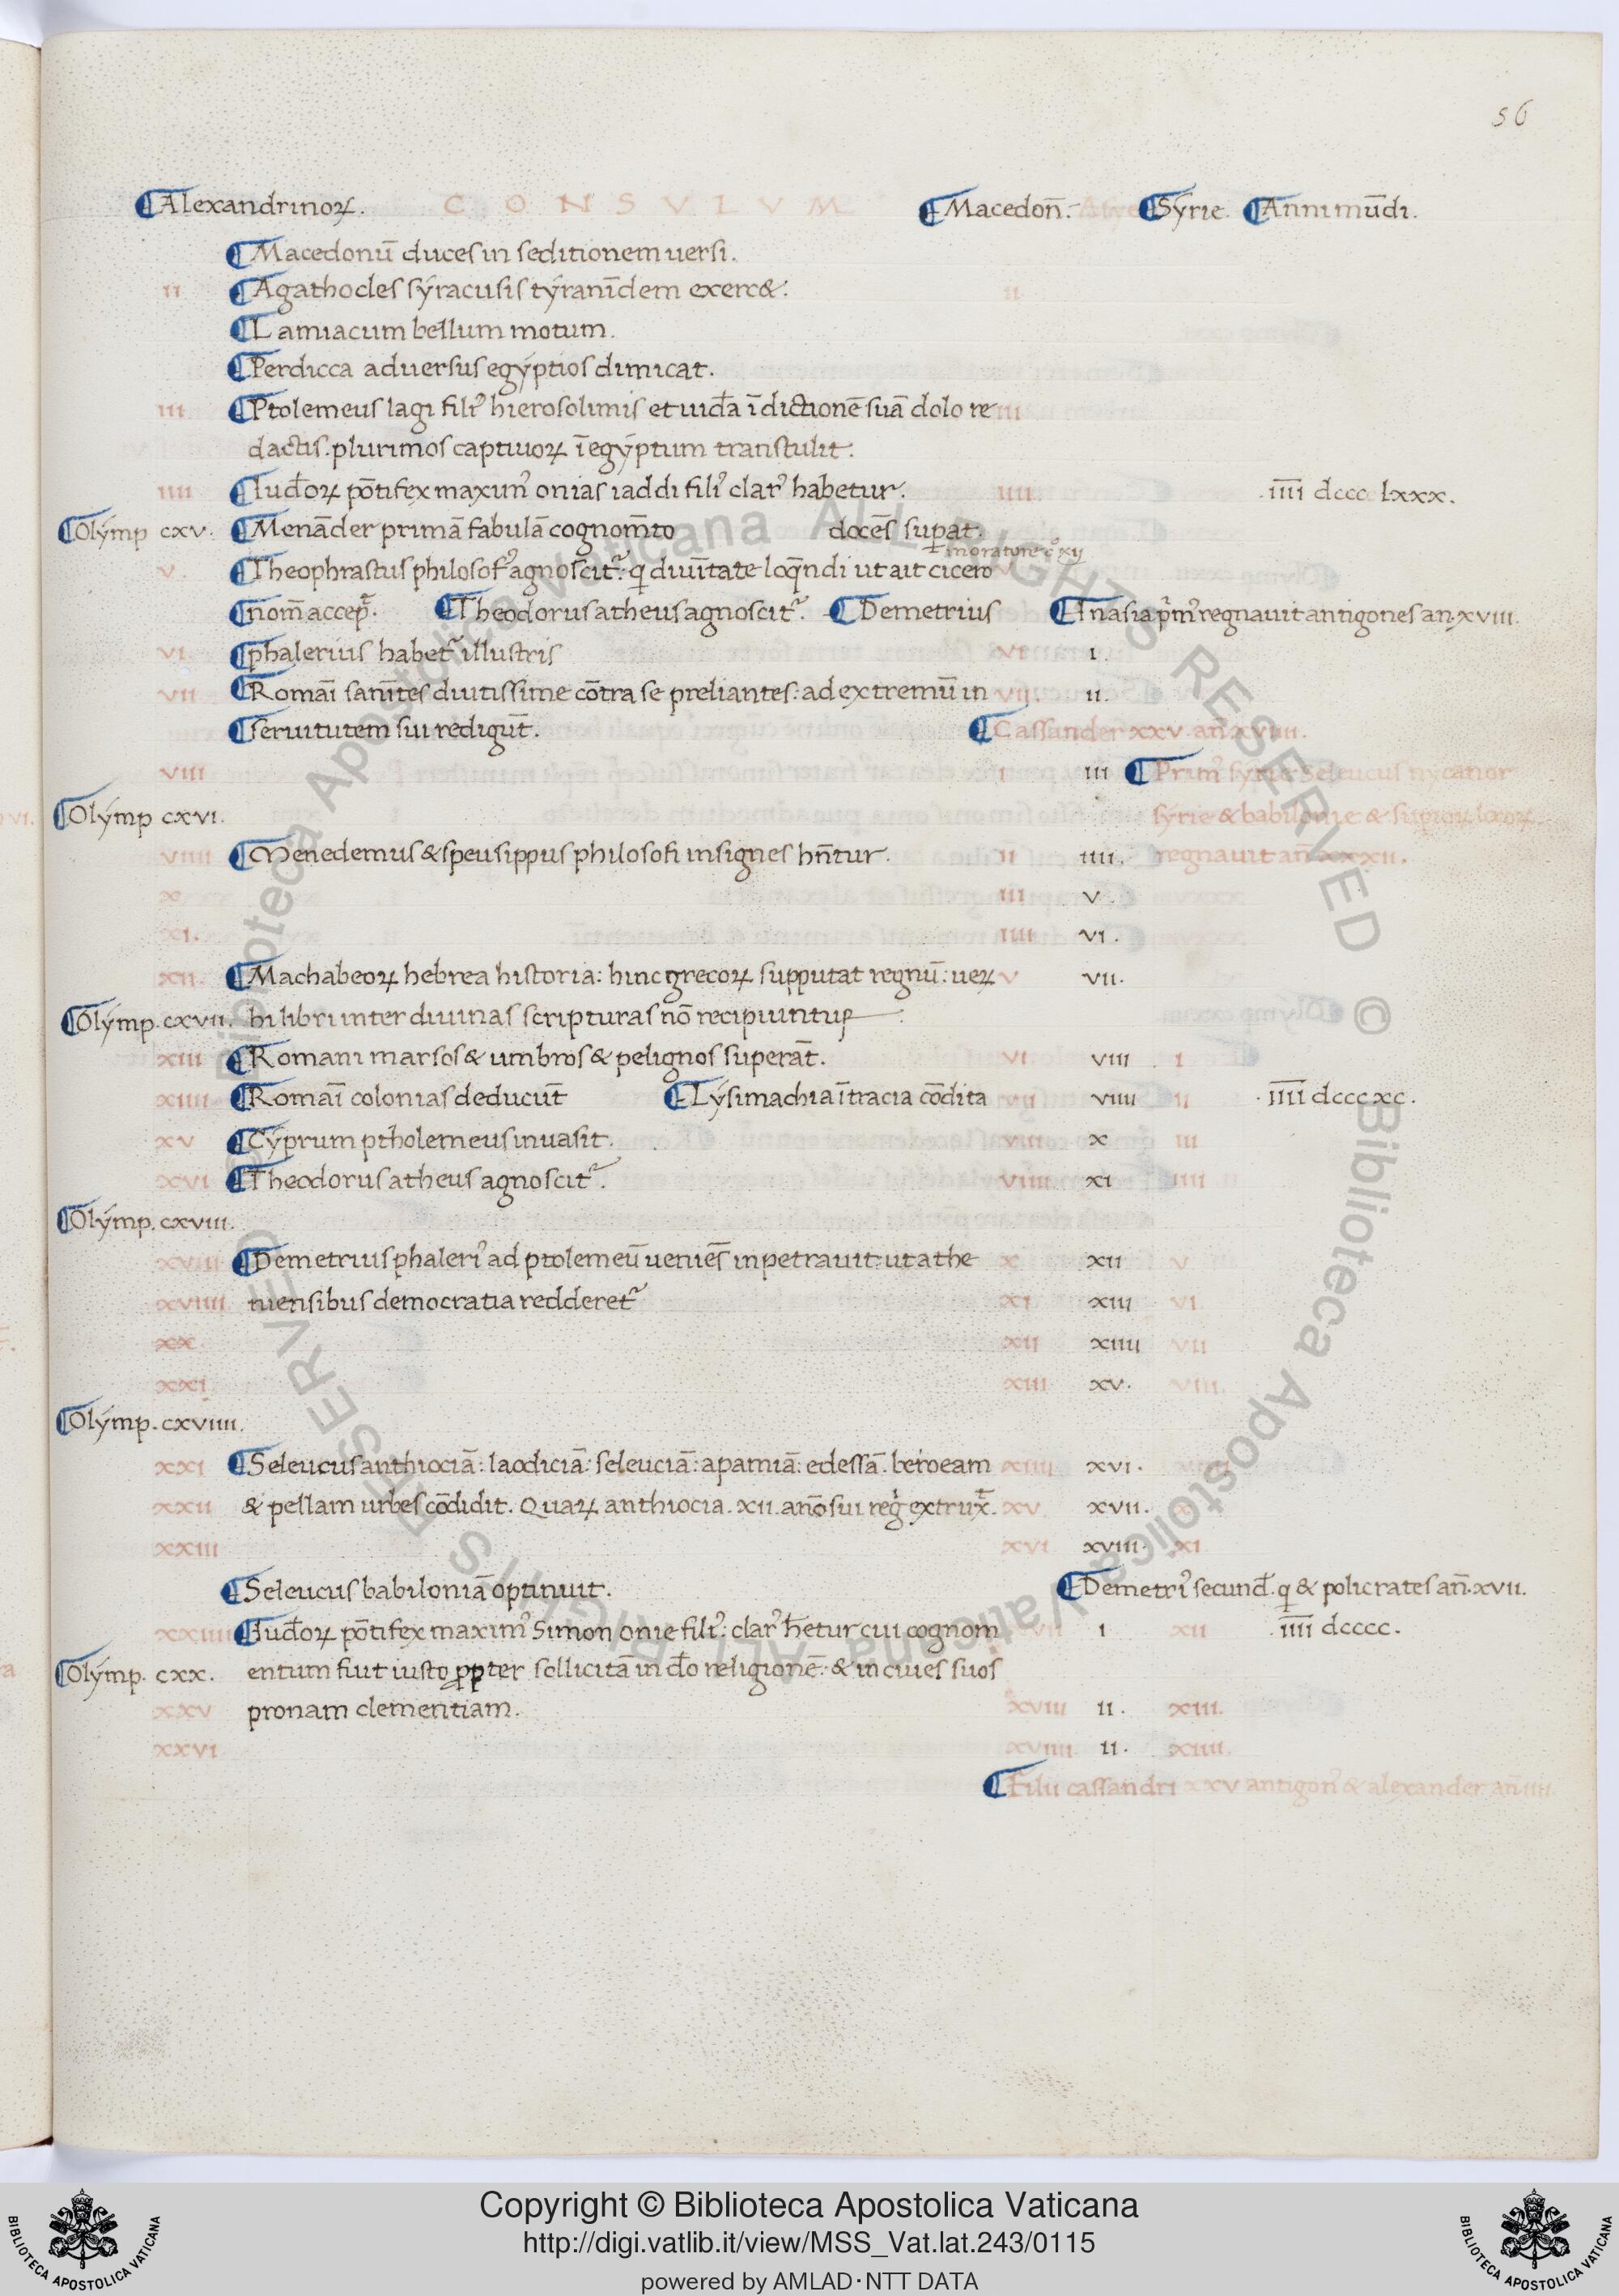 56
Alexandrinoꝝ. CONSVLVM Macedon̄. Syrie. Anni mūdi.
Macedonū duces in seditionem uersi.
II Agathocles syracusis tyranīdem exerc&. II
Lamiacum bellum motum.
Perdicca aduersus egyptios dimicat.
III Ptolemeus lagi filiꝰ hierosolimis et iud̄a ī dictionē suā dolo re III
dactis. plurimos captiuoꝝ ī egyptum transtulit.
IIII Iud̄oꝝ pōtifex maximꝰ onias iaddi filiꝰ clarꝰ habetur. IIII .IIII dccc lxxx.
Olymp cxv. Menāder primā fabulā cognom̄to docēs suꝑat.
V. Theophrastus philosofꝰ agnoscit᷑. q diuīitate loq̄ndi ut ait cicero
nom̄ accep᷑. Theodorus atheus agnoscit᷑. Demetrius In asia pͥmꝰ regnauit antigones an. xviii.
VI phalerius habet᷑ illustris VI I.
VII Romāi sam̄tes diutissime cōtra se preliantes: ad extremū in VII. II.
seruitutem sui redigūt. Cassander xxv. an̄ xviiii.
VIII I III Primꝰ syrie Seleucus nycanor
Olymp cxvi. syrie & babilonie & supioꝝ locoꝝ
VIIII Menedemus & speusippus philosofi insignes hn̄tur. II IIII. regnauit an̄ xxxii.
X III V.
XI. IIII VI.
XII. Machabeoꝝ hebrea historia: hinc grecoꝝ supputat regnū: ueꝝ V VII.
Olymp. cxvii. hi libri inter diuinas scripturas nō recipiuntur
XIII Romani marsos & umbros & pelignos superāt. VI VIII I
XIIII Romāi colonias deducūt Lysimachia ītracia cōdita VII VIIII II .IIII dccc xc.
XV Cyprum ptholemeus inuasit. VIII X III
XVI Theodorus atheus agnoscit᷑. VIIII XI IIII
Olymp. cxviii.
XVIII Demetrius phalerꝰ ad ptolemeū ueniēs inpetrauit: ut athe X XII V
XVIIII niensibus democratia redderet᷑ XI XIII VI
XX XII XIIII VII
XXI XIII XV. VIII.
Olymp. cxviiii.
XXI Seleucus anthiociā: laodiciā: seleuciā: apamiā: edessā. beroeam XIIII XVI.
XXII & pellam urbes cōdidit. Quaꝝ anthiocia. xii. anō sui reg̓ extrux᷑. XV XVII. X
XXIII XVI XVIII. XI
Seleucus babiloniā optinuit. Demetrꝰ secund̄. q & policrates an̄. xvii.
XXIIII Iud̄oꝝ pōtifex maximꝰ Simon onie filiꝰ: clarꝰ h̄etur cui cognom XVII I XII .IIII dcccc.
Olymp. cxx. entum fiut iusto ꝓpter sollicitā in d̄o religionē: & in ciues suos
XXV pronam clementiam. XVIII II. XIII.
XXVI XVIIII II. XIIII.
Filii cassandri xxv antigonꝰ & alexander an̄ iiii
Copyright © Biblioteca Apostolica Vaticana
http://digi.vatlib.it/view/MSS_Vat.lat.243/0115
powered by AMLAD·NTT DATA